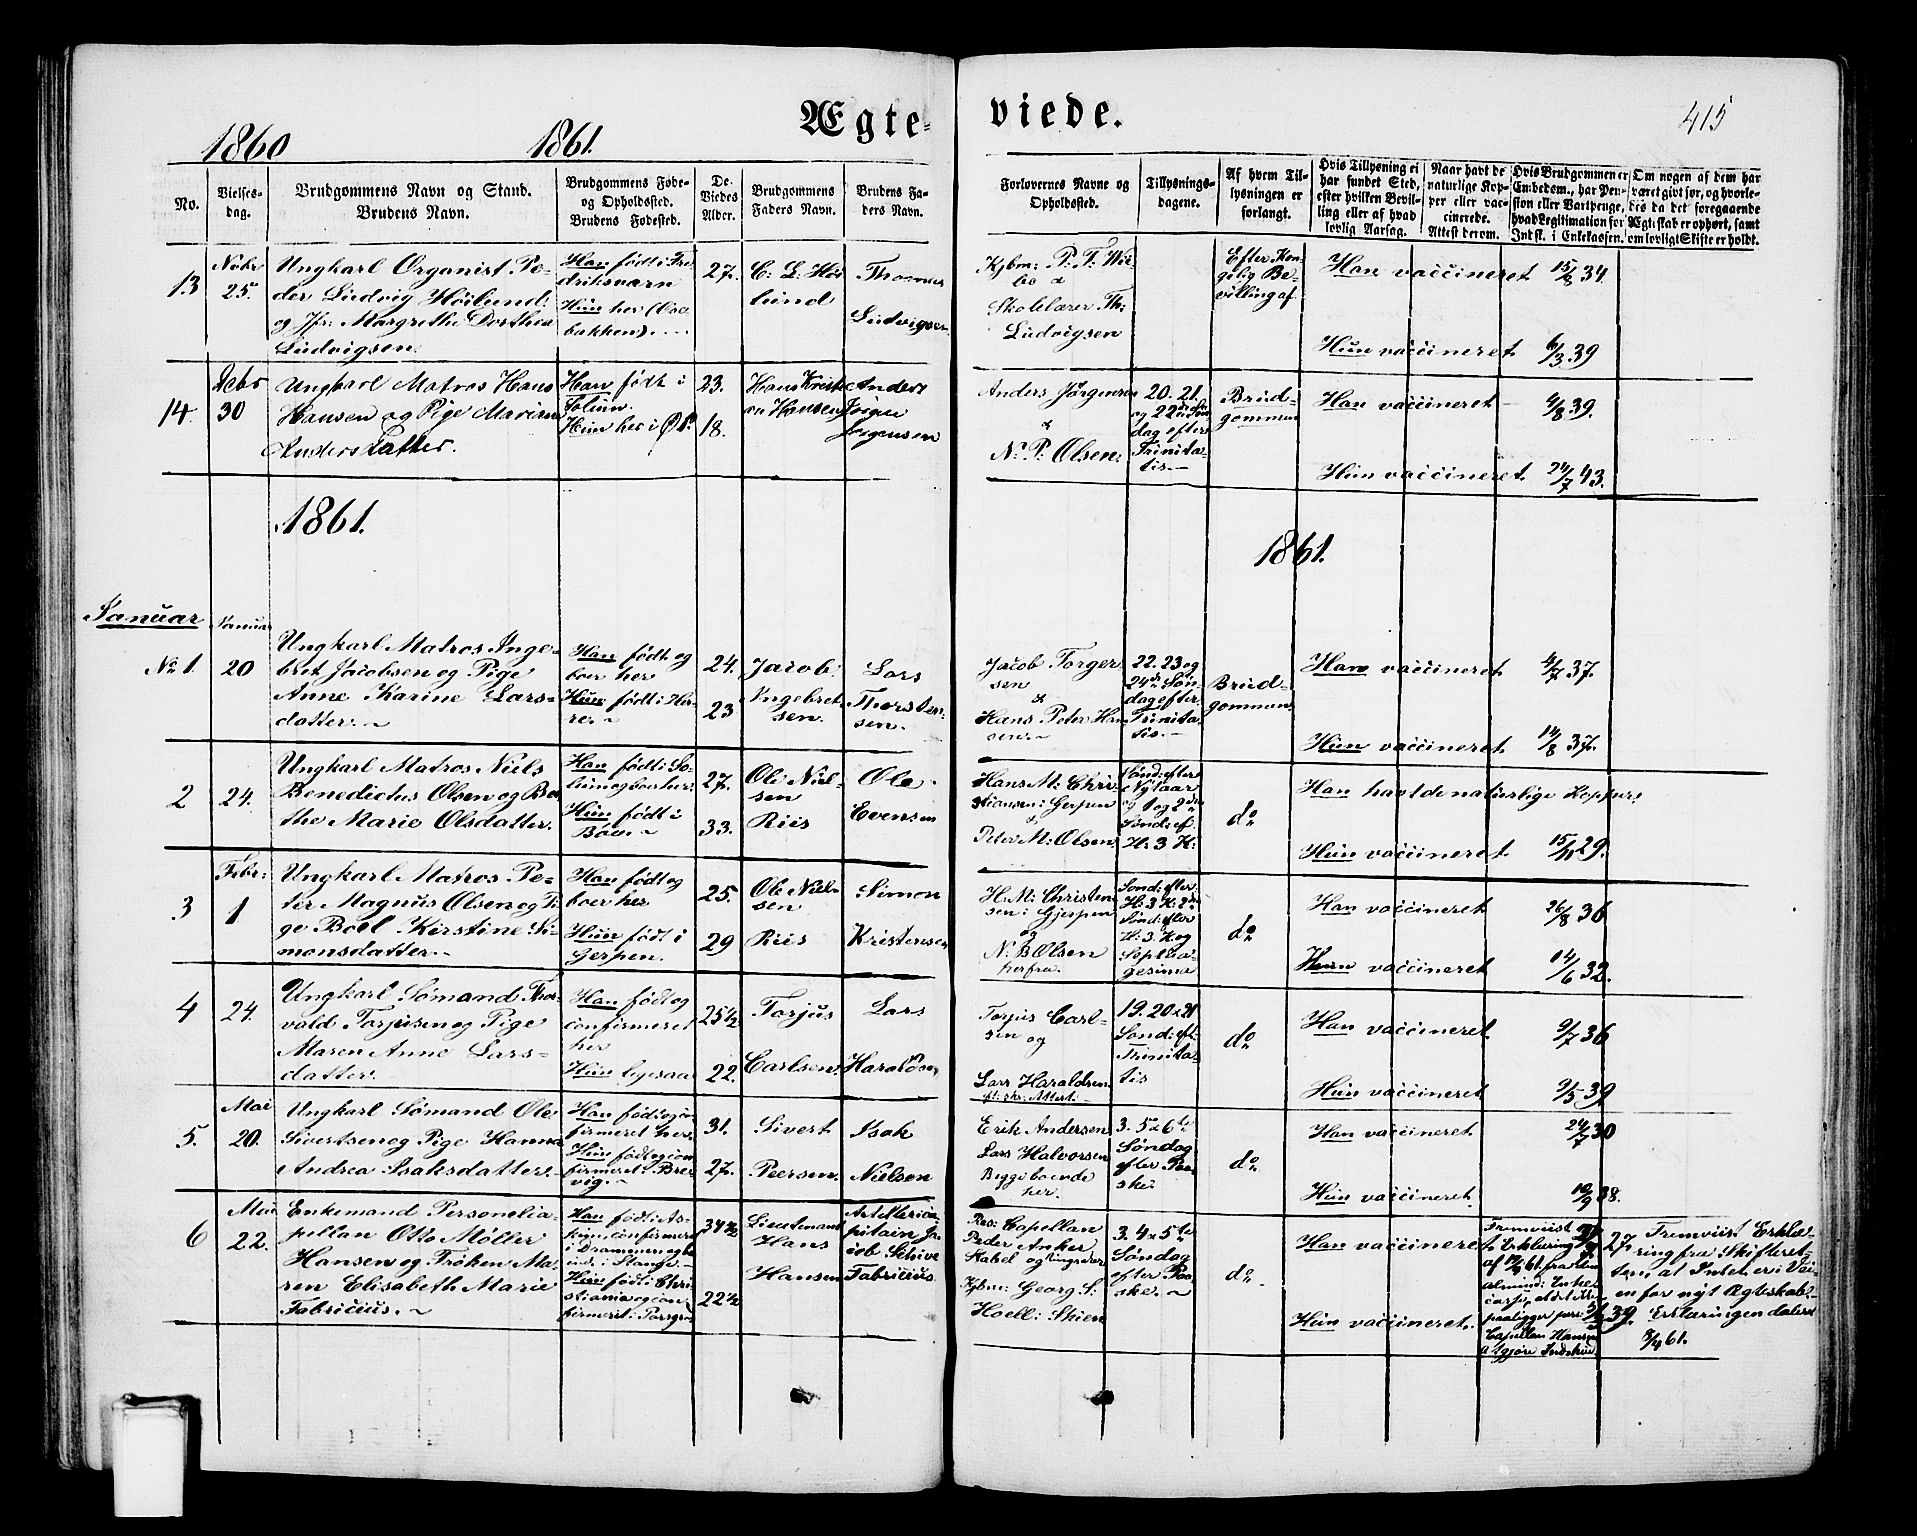 Ægte-
viede.
415
1860
1861.
No.
Vielses-
dag.
Brudgommens Navn og Stand.
Brudens Navn.
Brudgommens Føde-
og Opholdssted.
Brudens Fødested.
De
Viedes
Alder.
Brudgommens
Faders Navn.
Brudens Fa-
ders Navn.
Forlovernes Navne og
Opholdssted.
Tillysnings-
dagene.
Af hvem Til-
lysningen er
forlangt.
Hvis Tillysning ei
har fundet Sted,
efter hvilken Bevil-
ling eller af hvad
lovlig Aarsag.
Naar havt de
naturlige Kop-
per eller vac-
cinerede.
Attest derom.
Hvis Brudgommen er
Embedsm., har Pen-
sion eller Vartpenge,
hvad Legitimation for
Indsk. i Enkekassen.
Om nogen af dem har
været gift før, og hvorle-
des da det foregaaende
Ægteskab er ophørt, samt
om lovligt Skifte er holdt.
13
Nobr
25.
Ungkarl Organist Pe-
der Ludvig Höilund
og Jfr: Margrethe Dorthea
Ludvigsen.
Han født i Fre-
driksværn
Hun her (Osebakken).
27.
C. L. Höi
lund
Thomas
Ludvigsen
Kjbm: P. T. Wie-
bo &
Skolelærer Th:
Ludvigsen
Efter Kon-
gelig Be-
villing af
Han vaccineret 15/8 34.
Hun vaccineret 6/3 39
14.
Debr
30
Ungkarl Matros Hans
Hansen og Pige Maren
Andersdatter.
Han født i
Solum.
Hun her i
23.
18.
Hans Kristi-
an Hansen
Anders
Jörgen
Jörgensen
Anders Jörgensen
&
N. P. Olsen.
20. 21.
og 22de Søn
dag efter
Trinita-
tis.
Brud-
gommen
Han vaccineret 4/8 39.
Hun vaccineret 24/7 43.
1861.
1861.
Januar
No 1.
Januar
20
Ungkarl Matros Inge-
bret Jacobsen og Pige
Anne Karine Lars-
datter.
Han født og
boer her
Hun født i Her-
re.
24.
23
Jacob
Ingebret-
sen.
Lars
Thorsten-
sen.
Jacob Torger-
sen
&
Hans Peter Han
sen.
22. 23 og
24de Søn-
dag efter
Trinita-
tis.
Brud-
gommen
Han vaccineret 4/7 37.
Hun vaccineret 14/8 37.
2
24.
Ungkarl Matros Niels
Benedictus Olsen og Ber
the Marie Olsdatter.
Han født i So-
lum og boer her.
Hun født i
27.
33.
Ole Niel-
sen
Riis
Ole
Evensen
Hans M: Chri-
stiansen i Gjerpen
&
Peter M: Olsen
Sønd: efter
Nytaar
og 1 og 2den
Sønd: ef.
H: 3 K:
do
Han havt de naturlige Kopper.
Hun vaccineret 15/11 29.
3
Febr:
1
Ungkarl Matros Pe-
ter Magnus Olsen og Pi-
ge Boel Kirstine Si-
monsdatter.
Han født og
boer her
Hun født i
Gerpen.
25.
29
Ole Niel-
sen
Riis
Simon
Kristensen
H: M: Christen-
sen i Gjerpen
og
N. B Olsen
herfra
Sønd: efter
H: 3 K: 2den
Sønd: efter
H: 3. K og
Septua-
gesima
do
Han vaccineret 26/8 36
Hun vaccineret 14/6 32.
4
24.
Ungkarl Sømand Thor-
vald Torjusen og Pige
Maren Anne Lars-
datter.
Han født og
confirmeret
her
Hun ligesaa
25 1/2
22.
Torjus
Carlsen.
Lars
Haraldsen
Torjus Carl-
sen og
Lars Haraldsen
19. 20 & 21
Sønd: eft:
Trinita-
tis
do
Han vaccineret 9/7 36
Hun vaccineret 9/5 39
5.
Mai
20.
Ungkarl Sømand Ole
Sivertsen og Pige Hanna
Andrea Isaksdatter.
Han født og con
firmeret her.
Hun født og con
firmeret i Bre-
vig.
31.
27.
Sivert
Peersen.
Isak
Nielsen
Erik Andersen
Lars Halvorsen
Begge boende
her.
3. 5 & 6te
Søndag
efter Paa-
ske
do
Han vaccineret 24/7 30
Hun vaccineret 38.
6
Mai
22.
Enkemand Personelca-
pellan Otto Møller
Hansen og Frøken Ma-
ren Elisabeth Marie
Fabricius.
Han født i As-
kim, confirmeret
i Drammen og bo-
ende i Stange
Hun født i Chri
stiania og con
firmeret i Porsgr
34 1/2
22 1/2
Lieutenant
Hans
Hansen
Artillerica-
pitain Ja-
cob Schive
Fabricius.
Res: Capellan
Peder Anker
Stabel
Kjbm: Georg S:
Hoell: Skien
3. 4 & 5te
Søndag
efter Paa-
ske.
do
Han vaccineret 27.
Hun vaccineret. 39.
Fremviist
Erklæring
af 12/4 61 fra den
almind: Enke
casse, at det ikke
paaligger pers:
Capellan Hansen
at gjøre Indskud
Fremviist Erklæ-
ring fra Skifteret-
ten, at Intet er i Vei-
en for nyt Ægteskab
Erklæringen dateret
8/4 61.